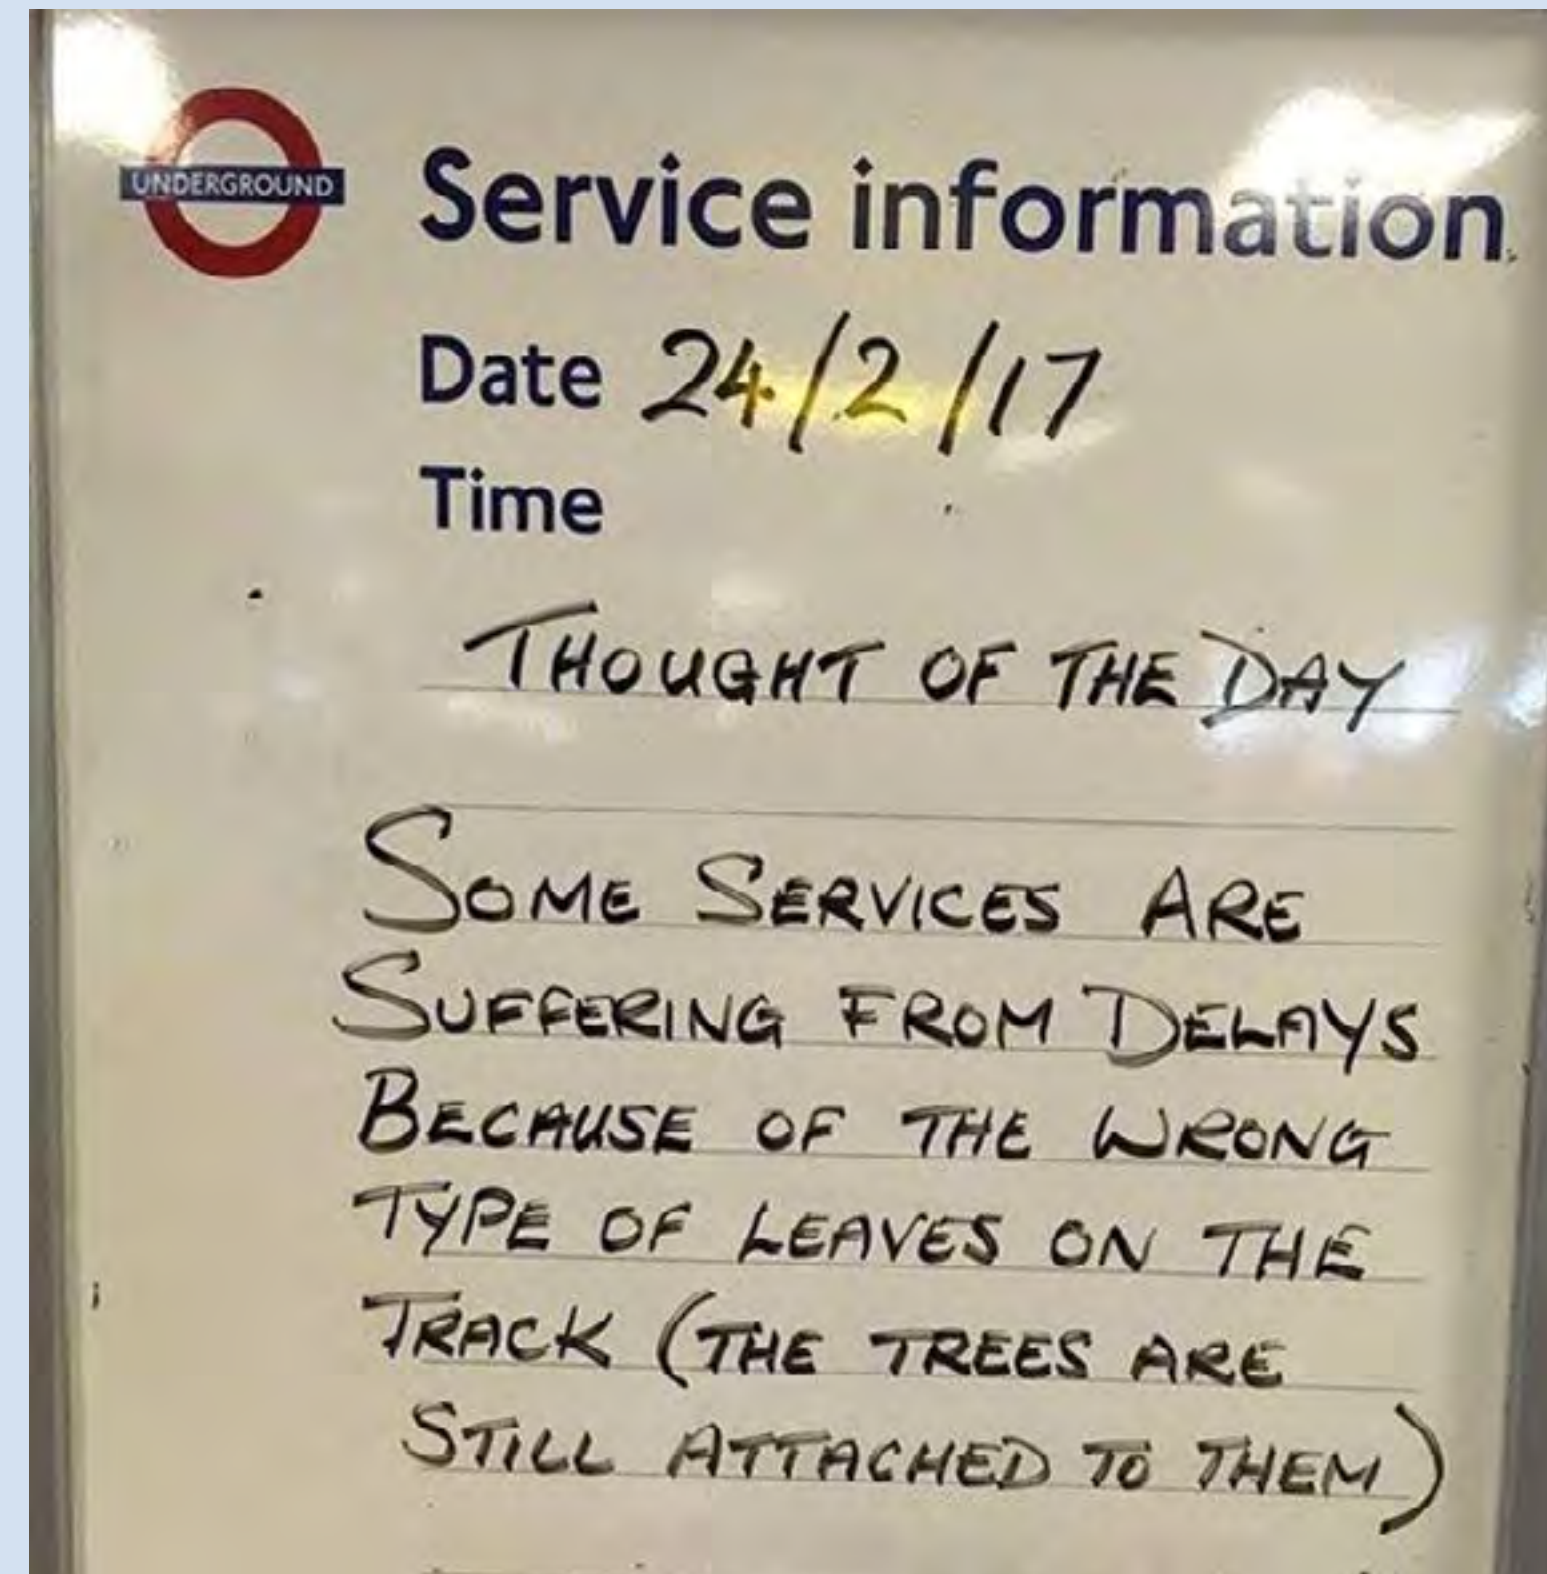 UNDERGROUND
Service information
Date 24/2/17
Time
THOUGHT OF THE DAY
SOME SERVICES ARE
SUFFERING FROM DELAYS
BECAUSE OF THE WRONG
TYPE OF LEAVES ON THE
TRACK (THE TREES ARE
STILL ATTACHED TO THEM)